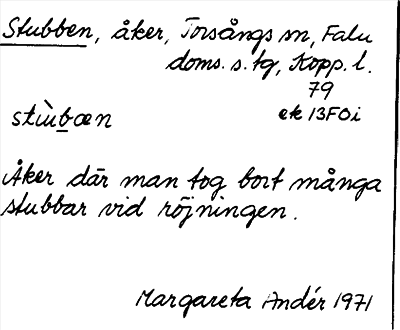 Stubben, åker, Torsångs sn, Falu
doms. s. tg, Kopp. l.
79
stùbæn ek 13F0i
Åker där man tog bort många
stubbar vid röjningen.
Margareta Andér 1971